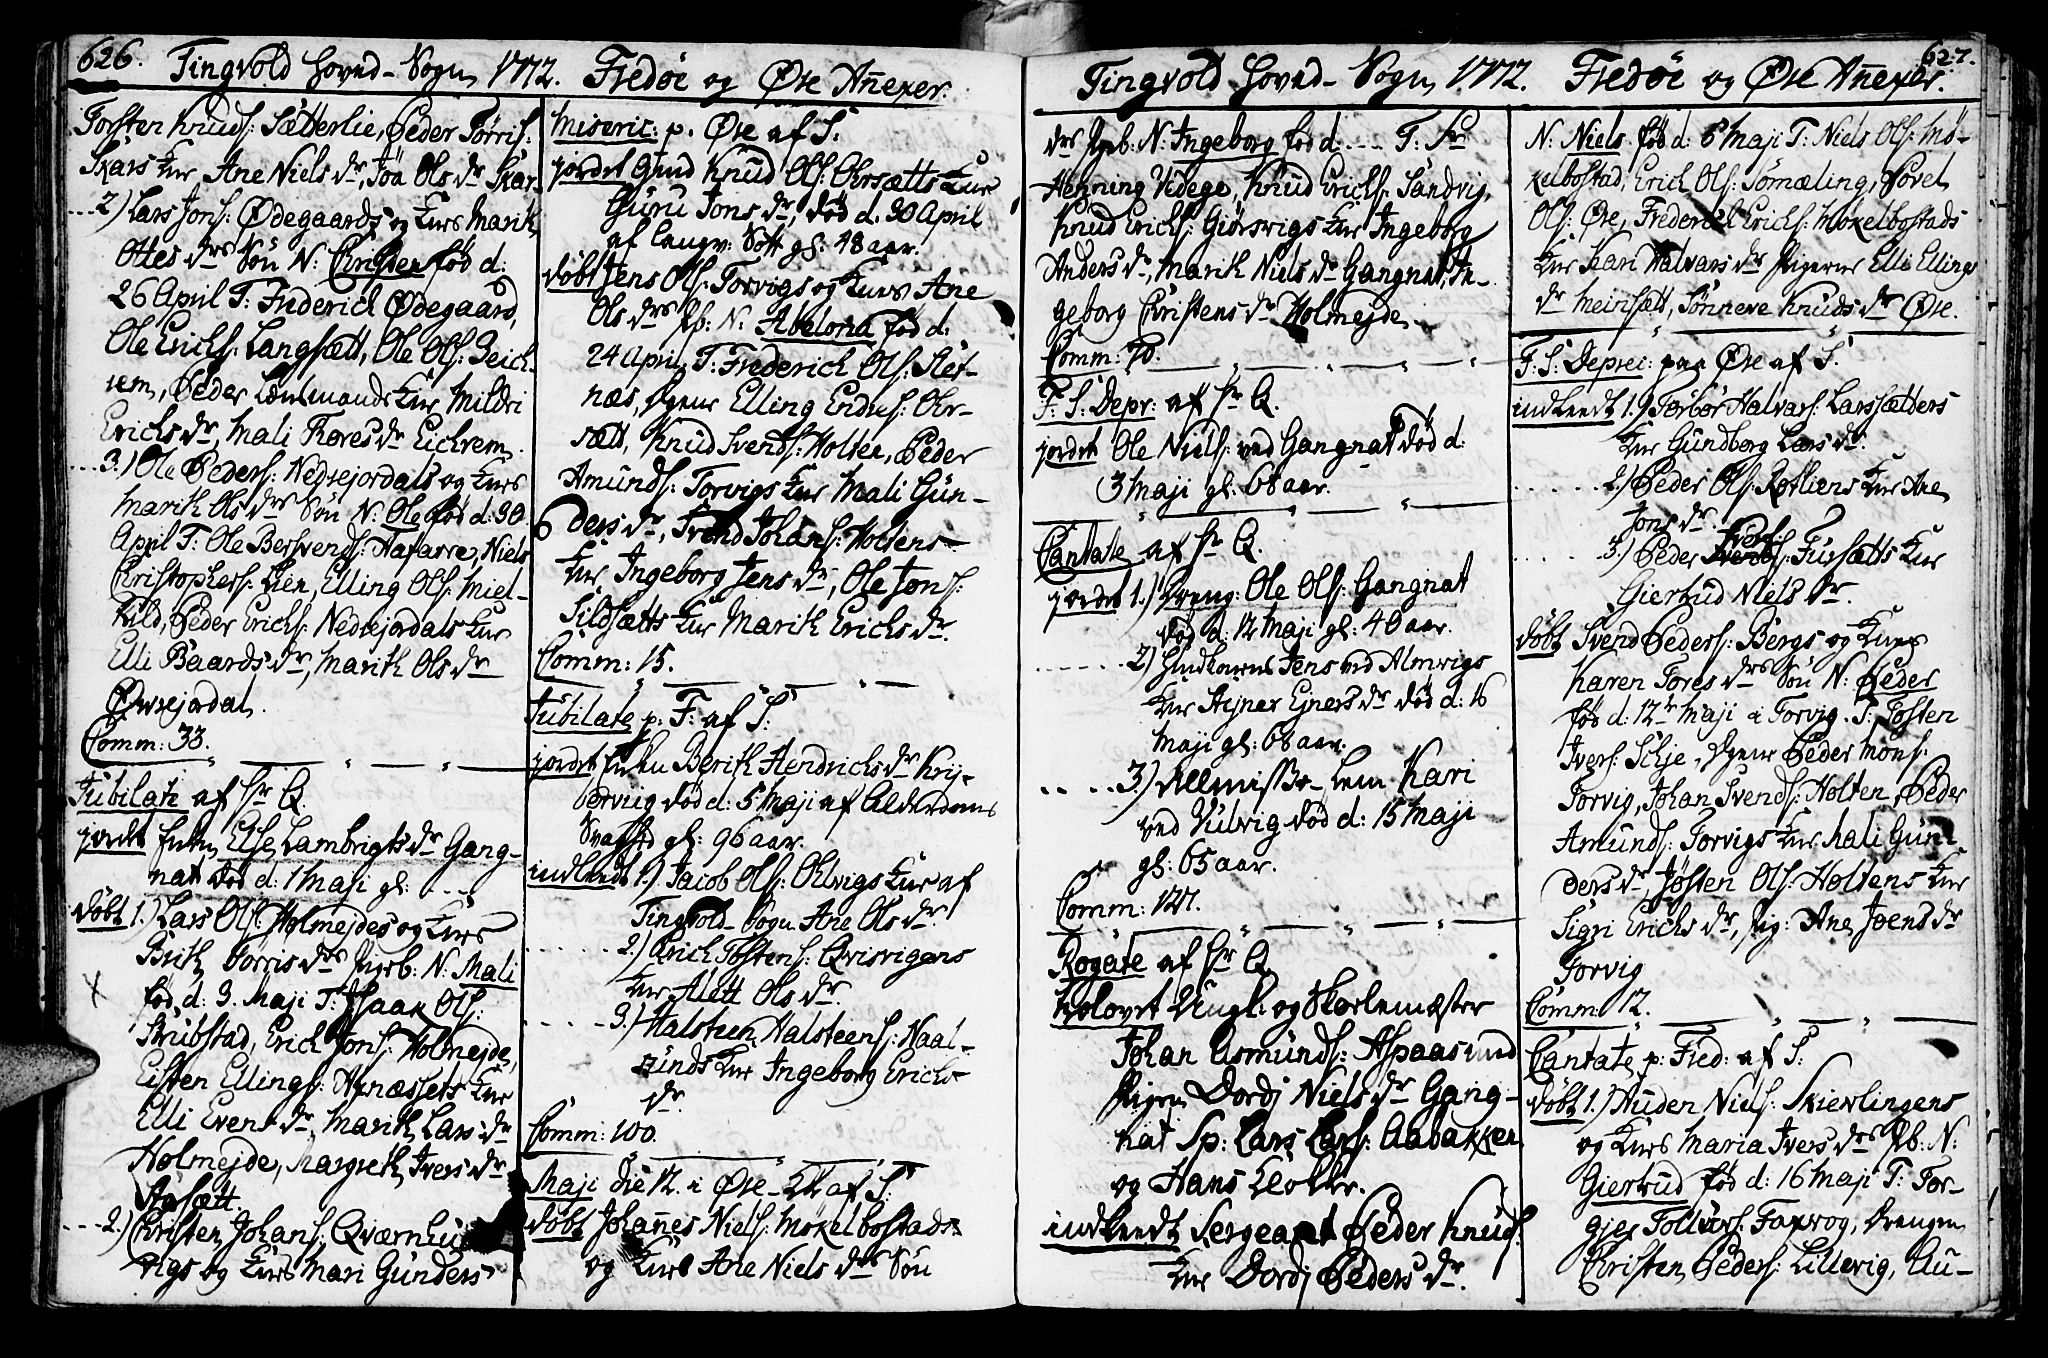 626. Tingvold Hoved-Sogn 1772. Fredøe og Øre Annexer.
Torsten Knuds: Sætterlie, Peder Tørris:
Skars Kne Ane Niels dr, Jøa Ols dr Skar
2) Lars Jons: Ødegaards og Knes Marit
Ottes drs Søn N: Christen fød d:
26 April T: Frederich Ødegaard,
Ole Erichs: Langsætt, Ole Ols: Beich-
rem, Peder Lensmands Kne Mildri
Erichs dr, Mali Tores dr Eichrem.
3.) Ole Peders: Nedrejordals og Knes
Marit Ols drs Søn N: Ole fød d: 30
April T: Ole Bersvends: Hafarre, Niels
Christophers: Lien, Elling Ols: Miel-
kild, Peder Erichs: Nedrejordals Kne
Elli Baards dr, Marit Ols dr
Øvrejordal.
Comm: 33.
Jubilate af Hr Q.
jordet Enken Else Lambrigts dr Gang-
nat død d: 1 Maji gl: ....
døbt 1.) Lars Ols: Holmejdes og Knes
Brit Torris drs Pigeb: N: Mali
fød d: 3. Maji T: Isaak Ols:
Skrubstad, Erich Jons: Holmejde,
Eisten Ellings: Arnæssets Kne
Elli Evens dr, Marit Lars dr
Holmejde, Margreth Ivers dr
Aasætt.
2.) Christen Johans: Qværnhu
vigs og Knes Mari Gunders
Miseric: p. Øre af S:
jordet Gmd Knud Ols: Orsætts Kne
Guru Jons dr, død d: 30 April
af langv: Sott gl: 48 aar.
døbt Jens Ols: Torvigs og Knes Ane
Ols drs Pb: N: Abelona fød d:
24 April T: Frederich Ols: Flet-
næs, Elling Endres: Or-
sætt, Knud Svends: Holten, Peder
Amunds: Torvigs Kne Mali Gun-
ders dr, Svend Johans: Holtens
Kne Ingeborg Jens dr, Ole Jons:
Sildsætts Kne Marit Erichs dr.
Comm: 15.
Jubilate p: F: af S:
jordet Enken Berith Hendrichs dr Krij-
bervig død d: 5 Maji af Alderdoms
Svaghed gl: 96 aar.
indleedt 1.) Jacob Ols: Olvigs Kne af
Tingvold-Sogn Ane Ols dr.
2.) Erich Tostens: Qvisvigens
Kne Alett Ols dr.
3.) Halsteen Halsteens: Naal-
sunds Kne Ingeborg Erichs
dr.
Comm: 100.
Maji die 12. i Øre-Kk af S:
døbt Johannes Niels: Møkelbostads
og Knes Ane Niels drs Søn
Tingvold Hoved-Sogn 1772. Fredøe og Øre Annexer. 627.
drs Pigeb: N: Ingeborg fød d: .... T: Hr
Henning Videge, Knud Erichs: Sandvig,
Knud Erichs: Giørsvigs Kne Ingeborg
Anders dr, Marit Niels dr Gangnat, In-
geborg Christens dr Holmejde.
Comm: 70.
F: S: Depr: af Hr Q.
jordet Ole Niels: ved Gangnat død d:
3 Maji gl: 68 aar.
Cantate af Hr Q.
jordet 1.) Dreng: Ole Ols: Gangnat
død d: 12 Maji gl: 40 aar.
2.) Huusmand Jens ved Almvigs
Kne Stejner Ejners dr død d: 16
Maji gl: 68 aar.
3.) Allmisse-Lem Kari
ved Vulvig død d: 15 Maji
gl: 65 aar.
Comm: 127.
Rogate af Hr Q.
trolovet Ungk: og Skolemæster
Johan Asmunds: Aspaas med
Pigen Dordj Niels dr Gang-
nat Sp: Lars Lars: Aabakken
og Hans Kloker.
indleedt Sergeant Peder Knuds:
Kne Dordj Peders dr.
N: Niels fød d: 6 Maji T: Niels Ols: Mø-
kelbostad, Erich Ols: Sømæling, Povel
Ols: Øre, Frederich Erichs: Mokelbostads
Kne Kari Halvars dr Pigerne Elli Ellings
dr Meirsætt, Sønneve Knuds dr Øre.
F: S: Deprei: paa Øre af S:
indleedt 1.) Torbør Halvars: Larssætters
Kne Gundborg Lars dr.
2.) Peder Ols: Rotliens Kne Ane
Jons dr.
3.) Peder Fursætts Kne
Giertrud Niels dr.
døbt Svend Peders: Bergs og Knes
Karen Tores drs Søn N: Peder
fød d: 12te Maji i Torvig. T: Tosten
Ivers: Silje, Peder Mons:
Torvig, Johan Svends: Holten, Peder
Amunds: Torvigs Kne Mali Gun-
ders dr, Josten Ols: Holtens Kne
Sigri Erichs dr, Pig: Ane Joens dr
Torvig
Comm: 12.
Cantate p: Fred: af S:
døbt 1.) Auden Niels: Skierlingens
og Knes Maria Ivers drs Pb: N:
Giertrud fød d: 16 Maji T: Tor-
gjer Tollvs: Foxrog, Drengen
Christen Peders: Lillevig, Au-